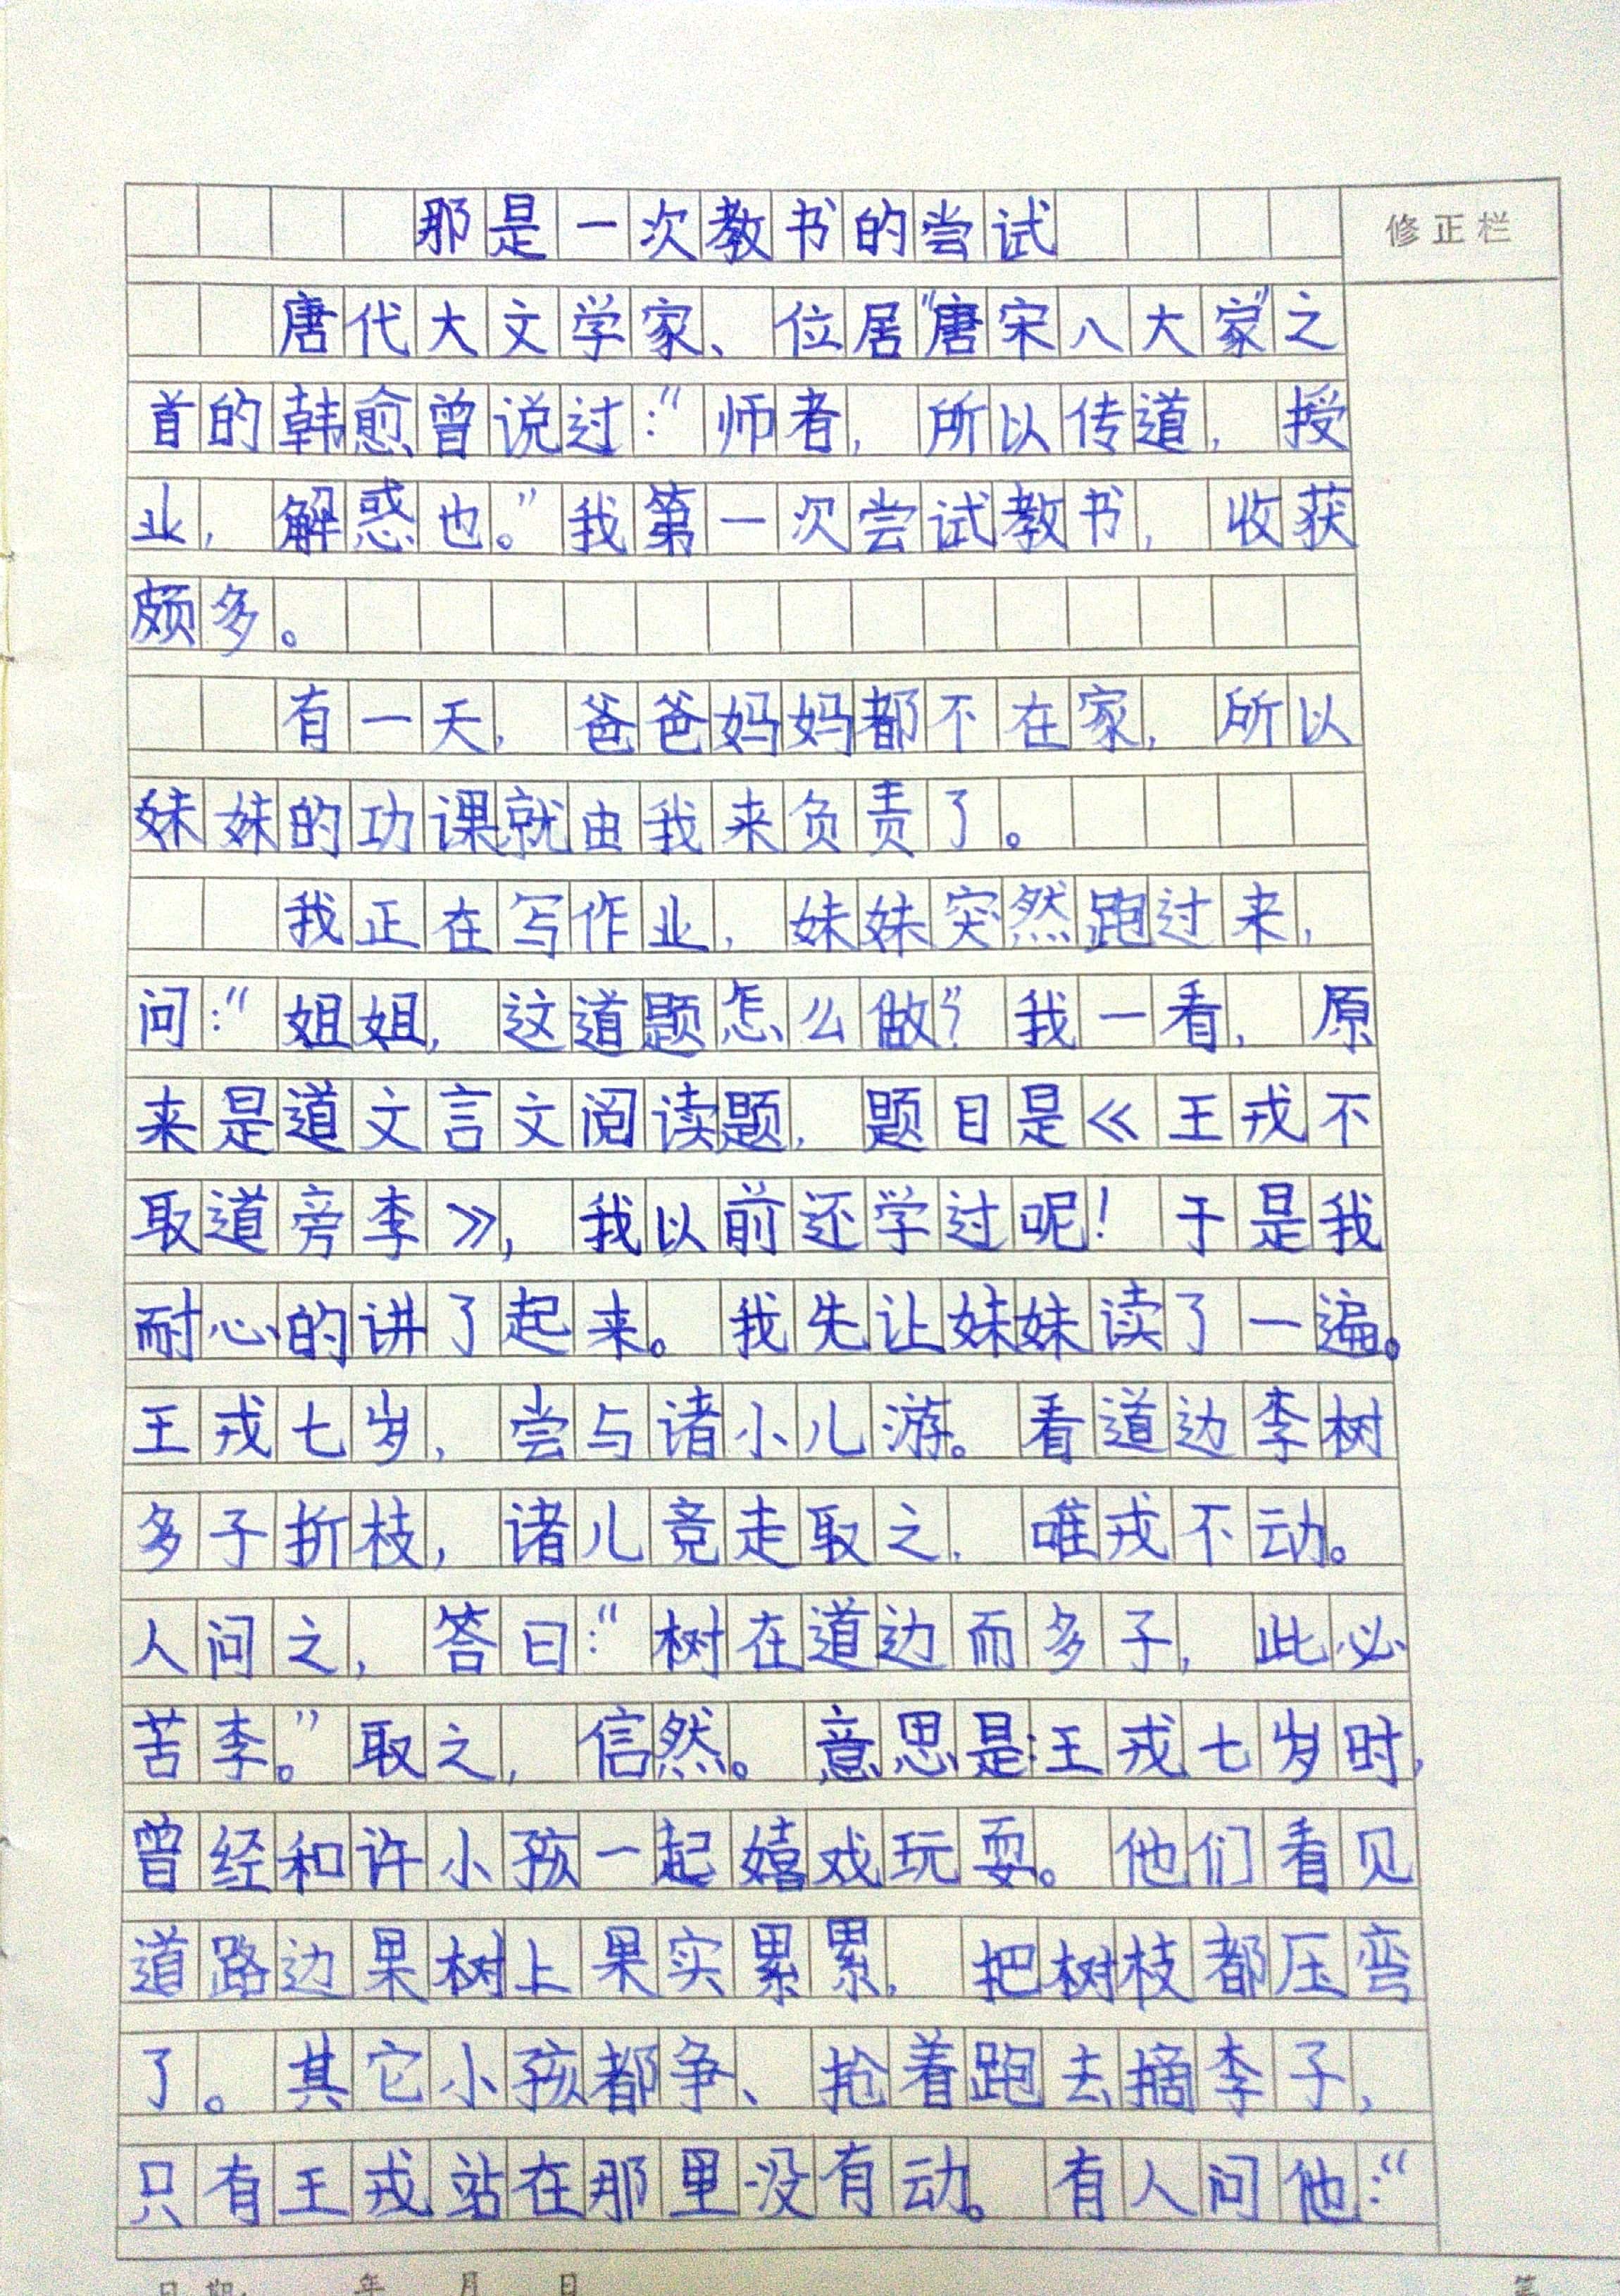 那是一次教书的尝试
修正栏
唐代大文学家、位居“唐宋八大家”之
首的韩愈曾说过:“师者,所以传道,授
业,解惑也。”我第一次尝试教书,收获
颇多。
有一天,爸爸妈妈都不在家,所以
妹妹的功课就由我来负责了。
我正在写作业,妹妹突然跑过来,
问:“姐姐,这道题怎么做?”我一看,原
来是道文言文阅读题,题目是《王戎不
取道旁李》,我以前还学过呢!于是我
耐心的讲了起来。我先让妹妹读了一遍。
王戎七岁,尝与诸小儿游。看道边李树
多子折枝,诸儿竞走取之,唯戎不动。
人问之,答曰:“树在道边而多子,此必
苦李。”取之,信然。意思是:王戎七岁时,
曾经和许小孩一起嬉戏玩耍。他们看见
道路边果树上果实累累,把树枝都压弯
了。其它小孩都争、抢着跑去摘李子,
只有王戎站在那里没有动。有人问他:“
日期: 年 月 日